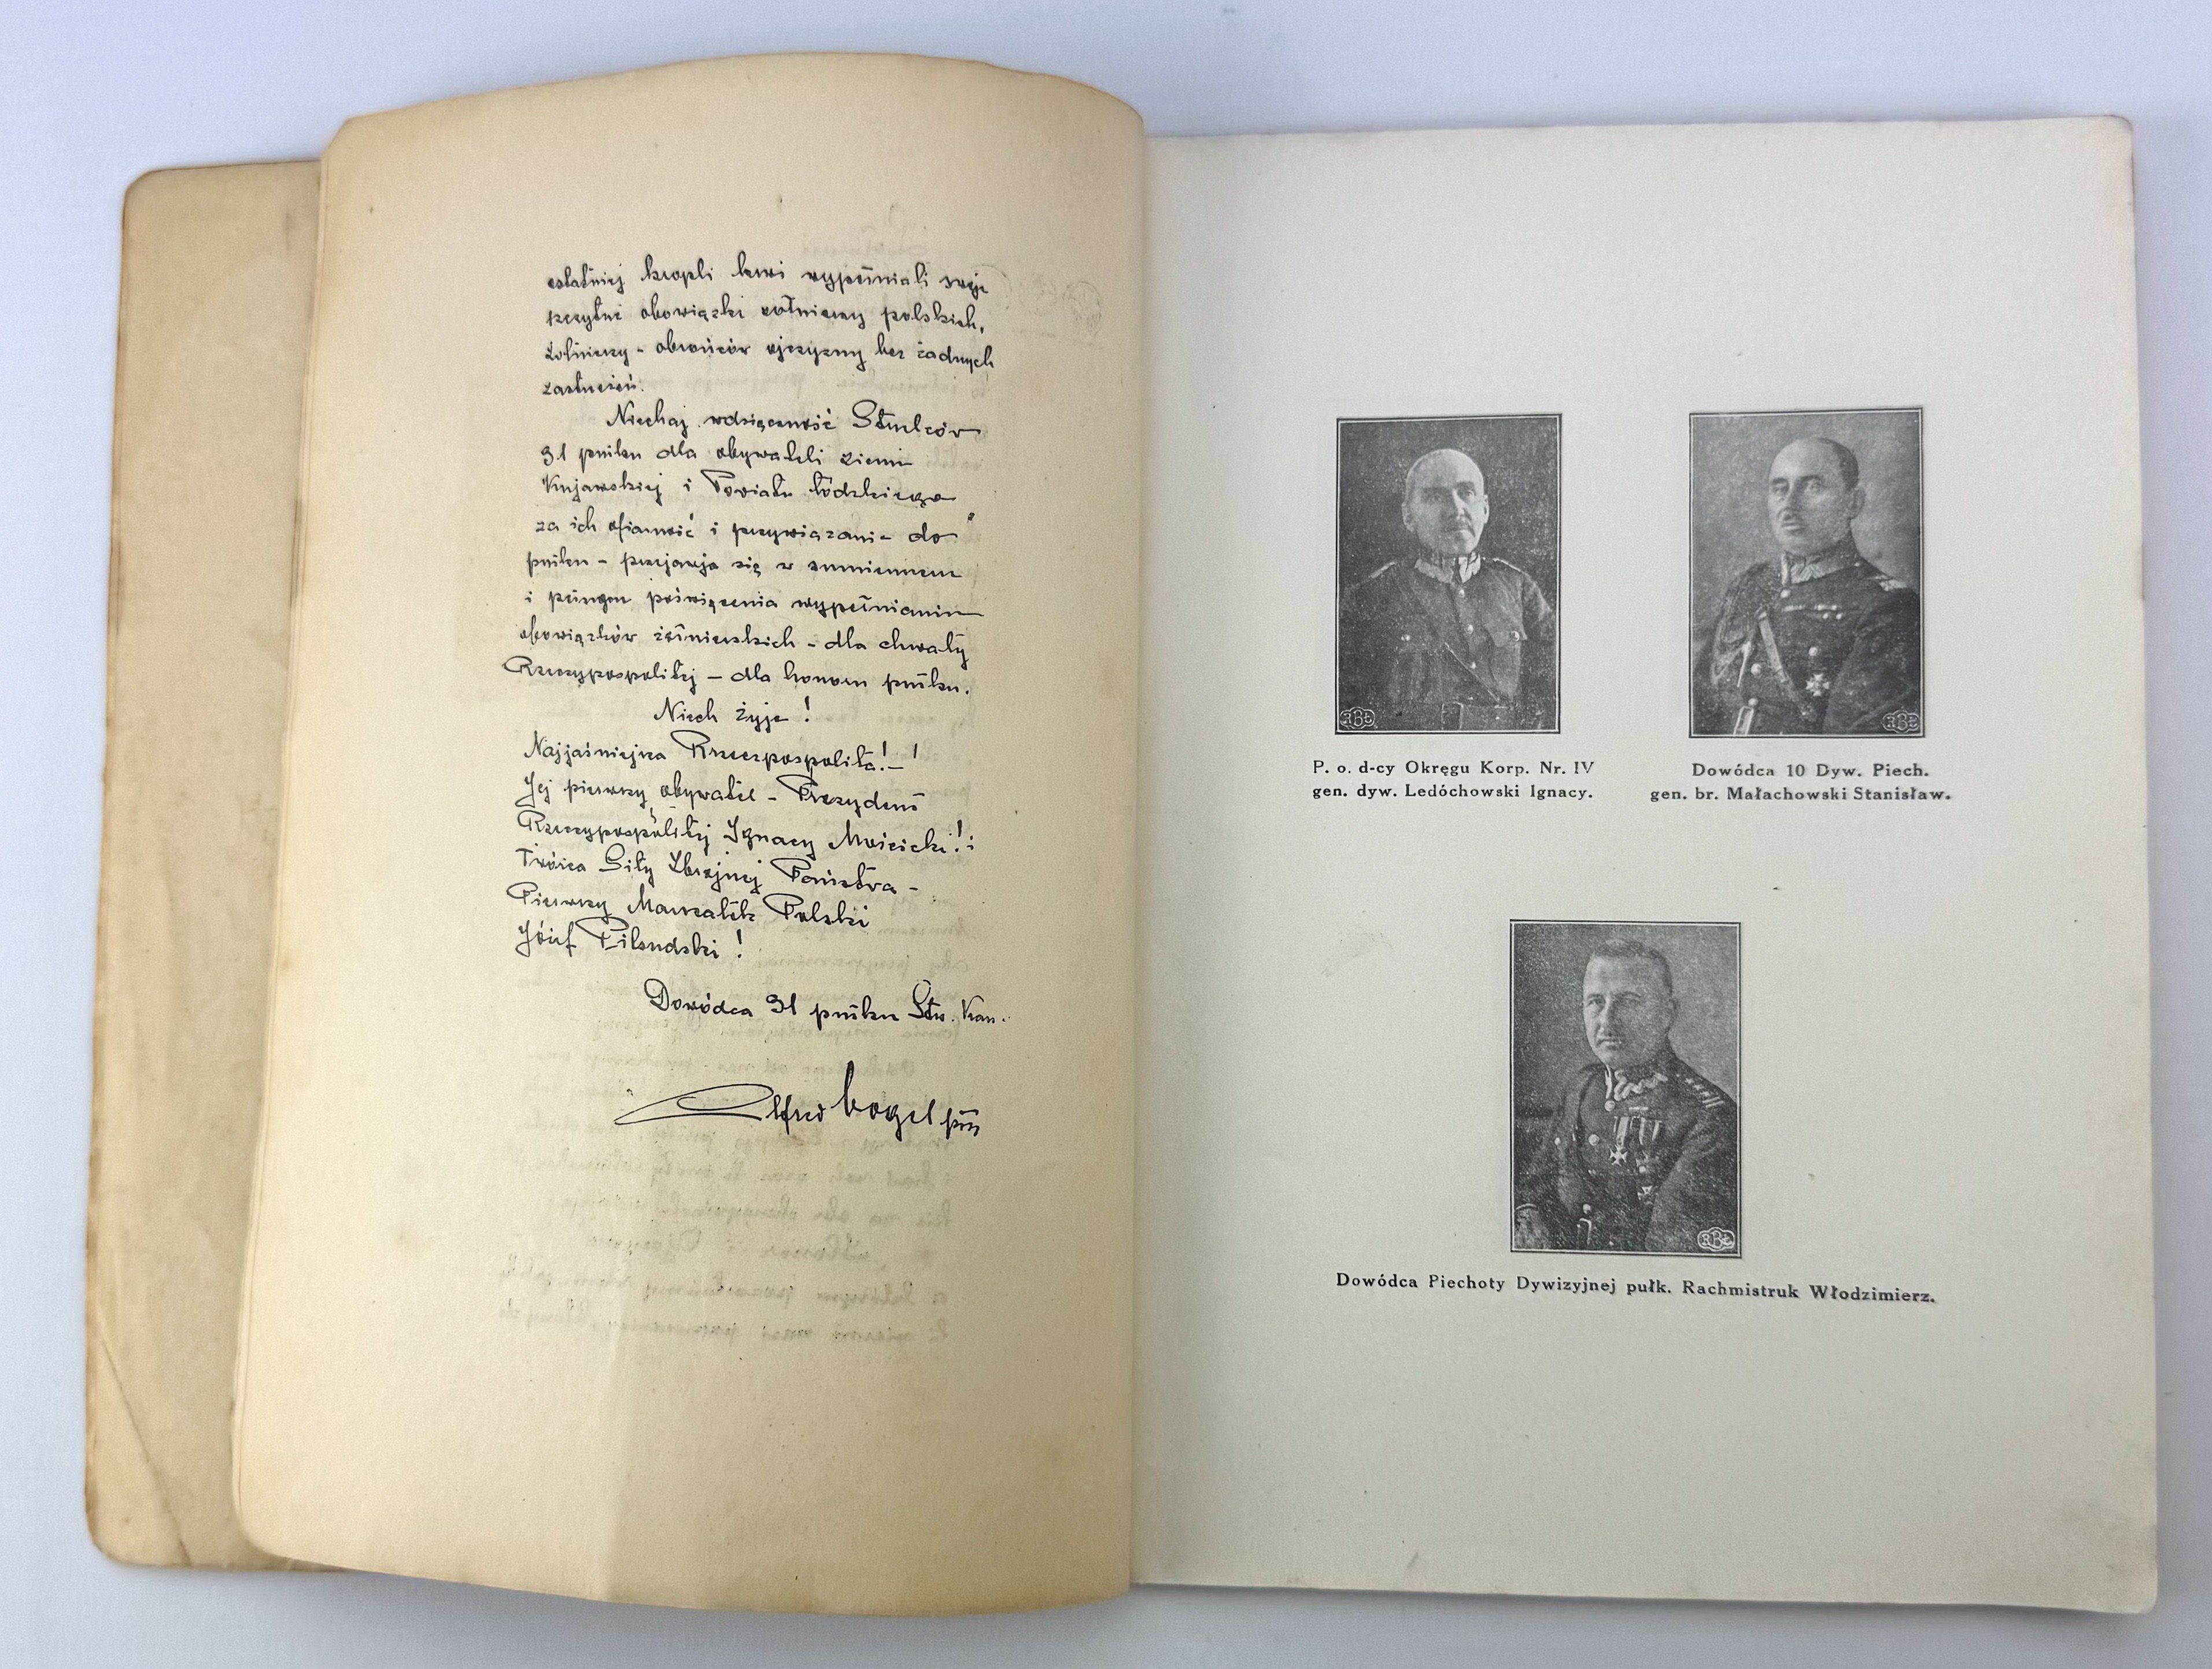 ostatniej kropli krwi wypełniali swoje
zaszczytne obowiązki żołnierzy polskich,
żołnierzy - obrońców ojczyzny bez żadnych
zastrzeżeń.
Niechaj wdzięczność Strzelców
31 pułku dla obywateli ziemi
Kujawskiej i Powiatu Łódzkiego
za ich ofiarność i przywiązanie do
pułku - przejawia się w sumiennem
i pełnym poświęcenia wypełnianiu
obowiązków żołnierskich - dla chwały
Rzeczypospolitej - dla honoru pułku.
Niech żyje!
Najjaśniejsza Rzeczpospolita! - !
Jej pierwszy obywatel - Prezydent
Rzeczypospolitej Ignacy Mościcki! i
Twórca Siły Zbrojnej Państwa -
Pierwszy Marszałek Polski
Józef Piłsudski!
Dowódca 31 pułku Strz. Kan.
Alfred Kogel płk
P. o. d-cy Okręgu Korp. Nr. IV
gen. dyw. Ledóchowski Ignacy.
Dowódca 10 Dyw. Piech.
gen. br. Małachowski Stanisław.
Dowódca Piechoty Dywizyjnej pułk. Rachmistruk Włodzimierz.